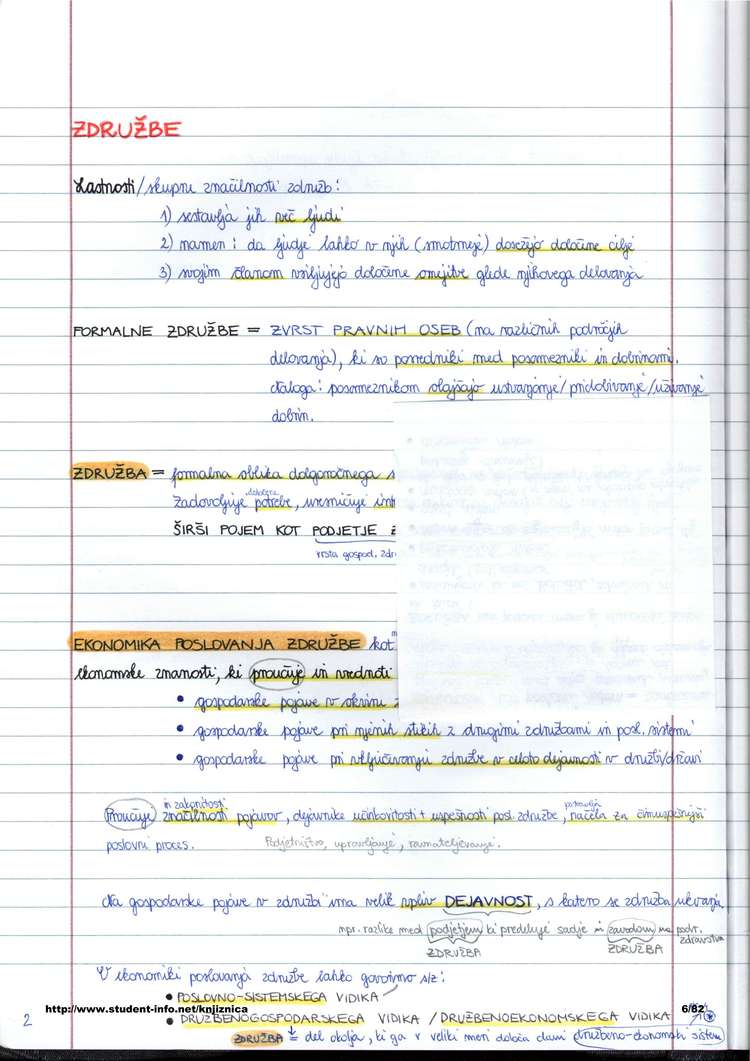 ZDRUŽBE
Lastnosti/skupne značilnosti združb:
1) sestavlja jih več ljudi
2) namen: da ljudje lahko v njih (smotrneje) dosežejo določene cilje
3) svojim članom vsiljujejo določene omejitve glede njihovega delovanja
FORMALNE ZDRUŽBE = ZVRST PRAVNIH OSEB (na različnih področjih
delovanja), ki so posredniki med posamezniki in dobrinami.
Naloga: posameznikom olajšajo ustvarjanje/pridobivanje/uživanje
dobrin.
ZDRUŽBA = formalna oblika dolgoročnega s
določene
zadovoljuje potrebe, uresničuje int
ŠIRŠI POJEM KOT PODJETJE
vrsta gospod. zdr
EKONOMIKA POSLOVANJA ZDRUŽBE kot
ekonomske znanosti, ki proučuje in vrednoti
• gospodarske pojave v okviru z
• gospodarske pojave pri njenih stikih z drugimi združbami in posl. sistemi
• gospodarske pojave pri vključevanju združbe v celoto dejavnosti v družbi/državi
in zakonitosti
postavlja
Proučuje značilnosti pojavov, dejavnike učinkovitosti + uspešnosti posl. združbe, načela za čimuspešnejši
poslovni proces. Podjetništvo, upravljanje, ravnateljevanje.
Na gospodarske pojave v združbi ima velik vpliv DEJAVNOST, s katero se združba ukvarja
npr. razlike med podjetjem ki prideluje sadje in zavodom na podr.
zdravstva
ZDRUŽBA ZDRUŽBA
V ekonomiki poslovanja združbe lahko govorimo s/z:
• POSLOVNO-SISTEMSKEGA VIDIKA
http://www.student-info.net/knjiznica 6/82
• DRUŽBENOGOSPODARSKEGA VIDIKA / DRUŽBENOEKONOMSKEGA VIDIKA
2
ZDRUŽBA = del okolja, ki ga v veliki meri določa dani družbeno-ekonomski sistem